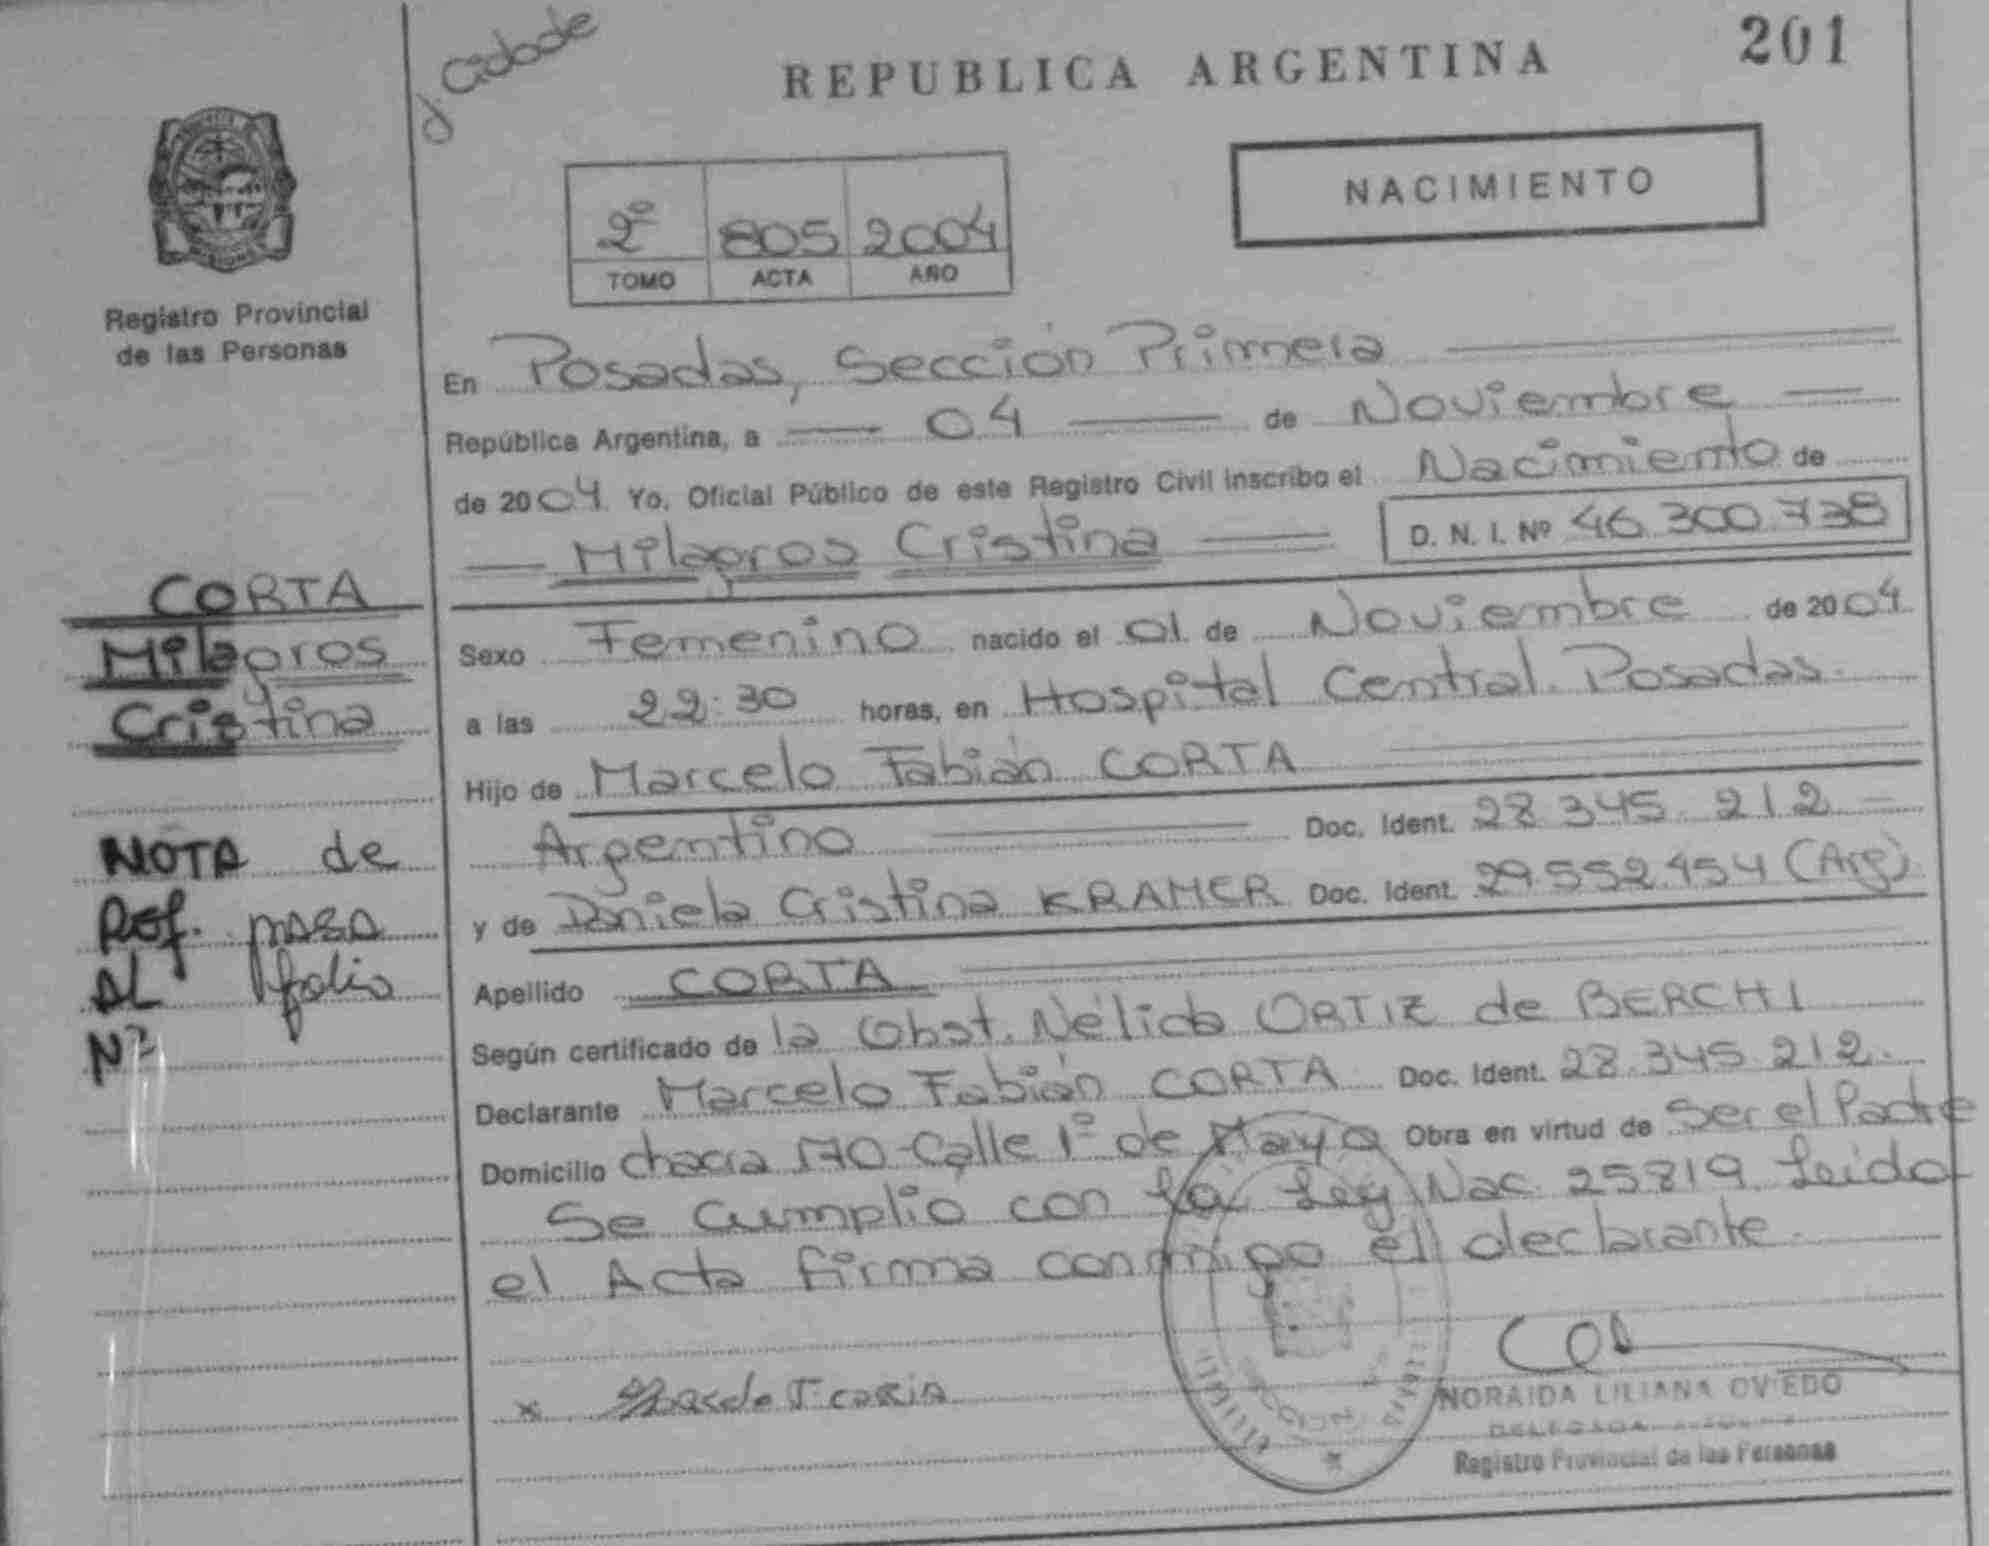 d. Cidade
REPUBLICA ARGENTINA
201
NACIMIENTO
2º 805 2004
TOMO ACTA AÑO
Registro Provincial
de las Personas
En Posadas, Sección Primera
República Argentina, a 04 de Noviembre
de 2004. Yo, Oficial Público de este Registro Civil inscribo el Nacimiento de
Milagros Cristina D. N. I. Nº 46.300.738
CORTA
Milagros
Cristina
Sexo Femenino nacido el 01 de Noviembre de 2004
a las 22:30 horas, en Hospital Central. Posadas.
Hijo de Marcelo Fabián CORTA
Argentino Doc. Ident. 28.345.212
y de Daniela Cristina KRAMER Doc. Ident. 29.552.454 (Arg)
Apellido CORTA
Según certificado de la Obst. Nélida ORTIZ de BERCHI
Declarante Marcelo Fabián CORTA Doc. Ident. 28.345.212.
Domicilio chacra 170-Calle 1º de Mayo Obra en virtud de Ser el Padre
Se Cumplio con la Ley Nac. 25819 Leida
el Acta firma conmigo el declarante.
NOTA de
Ref. pasa
al folio
Nº
NORAIDA LILIANA OVIEDO
DELEGADA
Registro Provincial de las Personas